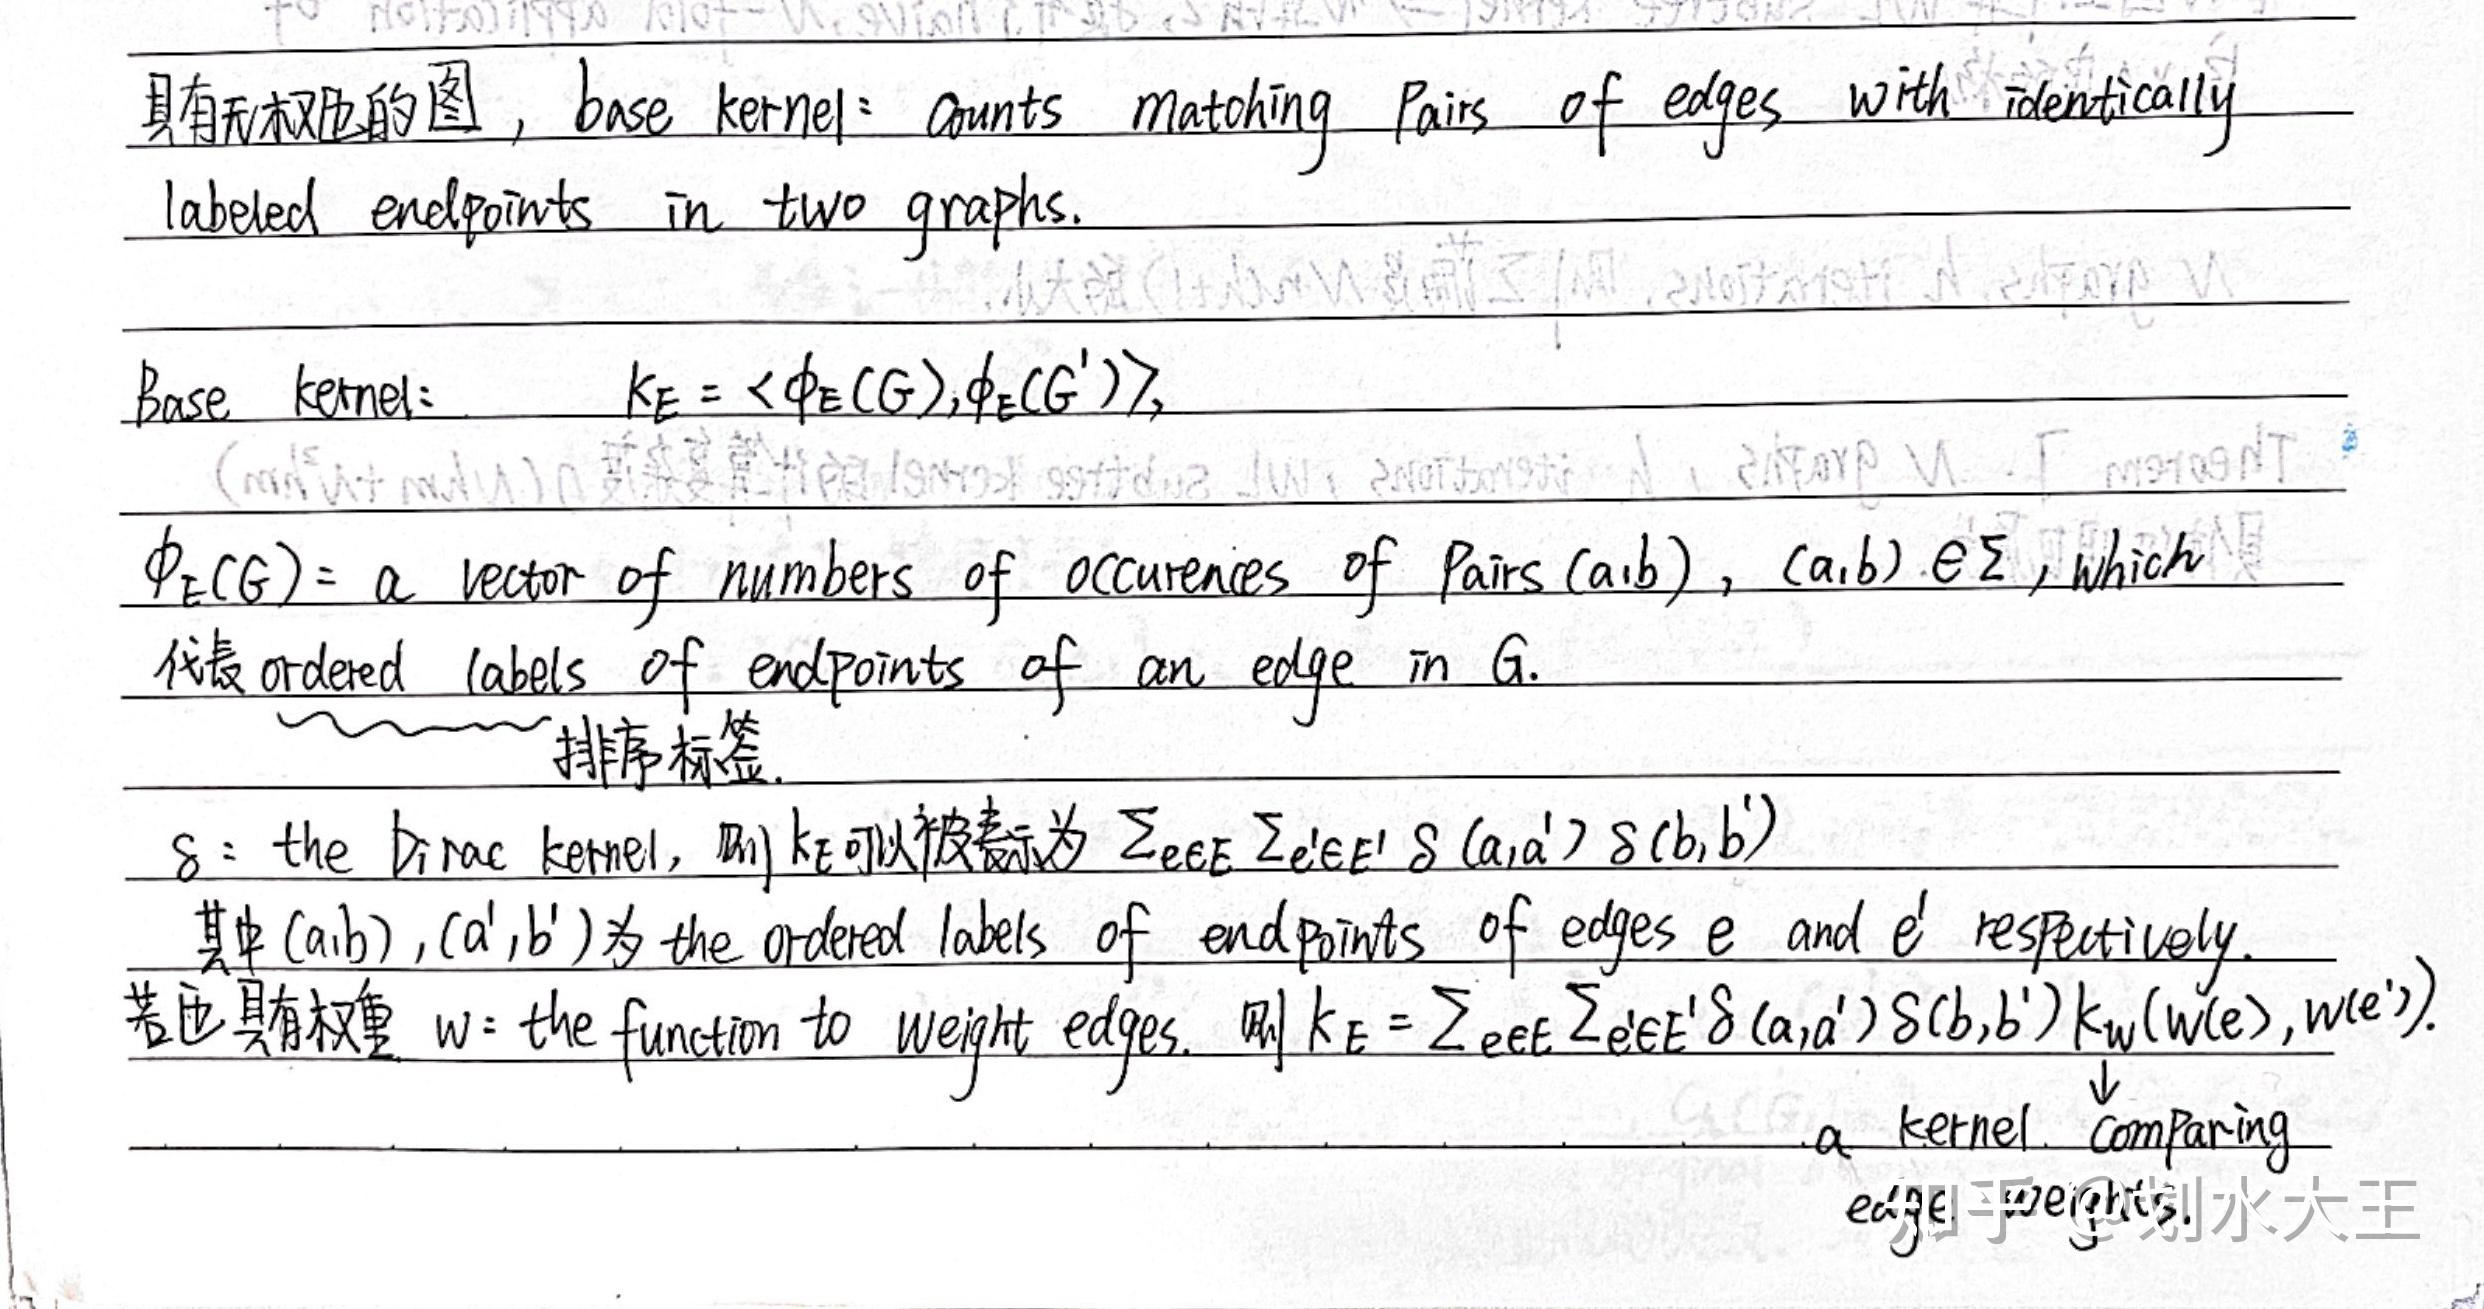 具有无权边的图, base kernel: counts matching Pairs of edges with identically
labeled endpoints in two graphs.
Base kernel: kE = <ϕE(G),ϕE(G')>,
ϕE(G) = a vector of numbers of occurences of Pairs (a,b), (a,b) ∈ Σ, which
代表 ordered labels of endpoints of an edge in G.
排序标签.
δ: the Dirac kernel, 则 kE可以被表示为 Σe∈E Σe'∈E' δ(a,a') δ(b,b')
其中(a,b),(a',b')为 the ordered labels of endpoints of edges e and e' respectively.
若边具有权重 w: the function to weight edges. 则 kE = Σe∈E Σe'∈E' δ(a,a') δ(b,b') kw(w(e), w(e')).
↓
a kernel comparing
edge weights.
知乎 @划水大王